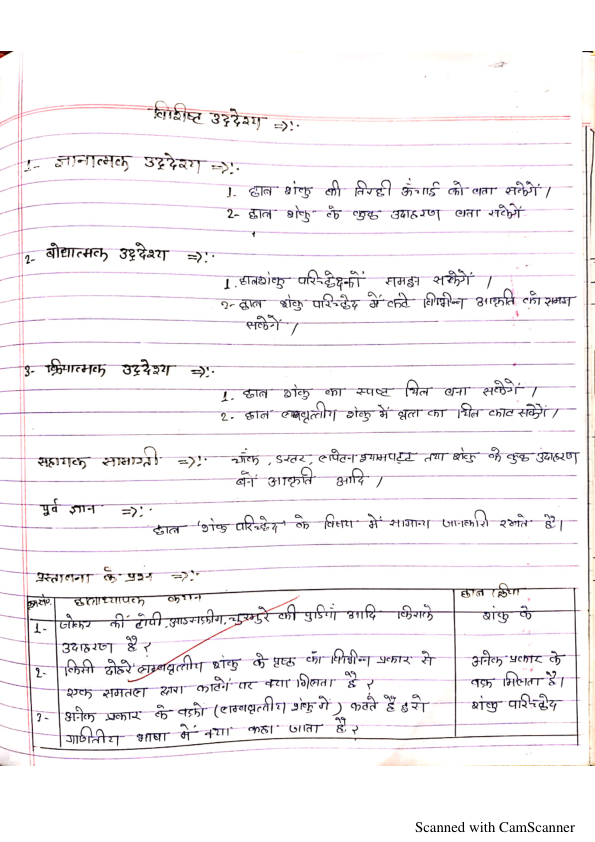 विशिष्ट उद्देश्य =>:-
1- ज्ञानात्मक उद्देश्य =>:-
1. छात्र शंकु की तिरछी ऊंचाई को बता सकेगें /
2- छात्र शंकु के कुछ उदाहरण बता सकेगें
2- बोधात्मक उद्देश्य =>:-
1. छात्र शंकु परिच्छेदकों समझ सकेगें /
2- छात्र शंकु परिच्छेद में कटे विभिन्न आकृति को समझ
सकेगें /
3- क्रियात्मक उद्देश्य =>:-
1. छात्र शंकु का स्पष्ट चित्र बना सकेगें /
2. छात्र लम्बवृत्तीय शंकु में वृत्त का चित्र काट सकेगें /
सहायक सामाग्री =>:- चॉक, डस्टर, लपेटन श्यामपट्ट तथा शंकु के कुछ उदाहरण
बने आकृति आदि /
पूर्व ज्ञान =>:-
छात्र "शंकु परिच्छेद" के विषय में सामान्य जानकारी रखते हैं।
प्रस्तावना के प्रश्न =>:-
क्र०सं० छात्राध्यापक कथन छात्र क्रिया
1- जोकर की टोपी, आइसक्रीम, चुरमुरे की पुड़िया आदि किसके शंकु के
उदाहरण है ?
2- किसी दोहरे लम्बवृत्तीय शंकु के पृष्ठ को विभिन्न प्रकार से अनेक प्रकार के
एक समतल द्वारा काटने पर क्या मिलता है ? वक्र मिलता है।
3- अनेक प्रकार के वक्रो (लाम्बवृत्तीय शंकु में) कटते हैं इसे शंकु परिच्छेद
गणितीय भाषा में क्या कहा जाता है ?
Scanned with CamScanner